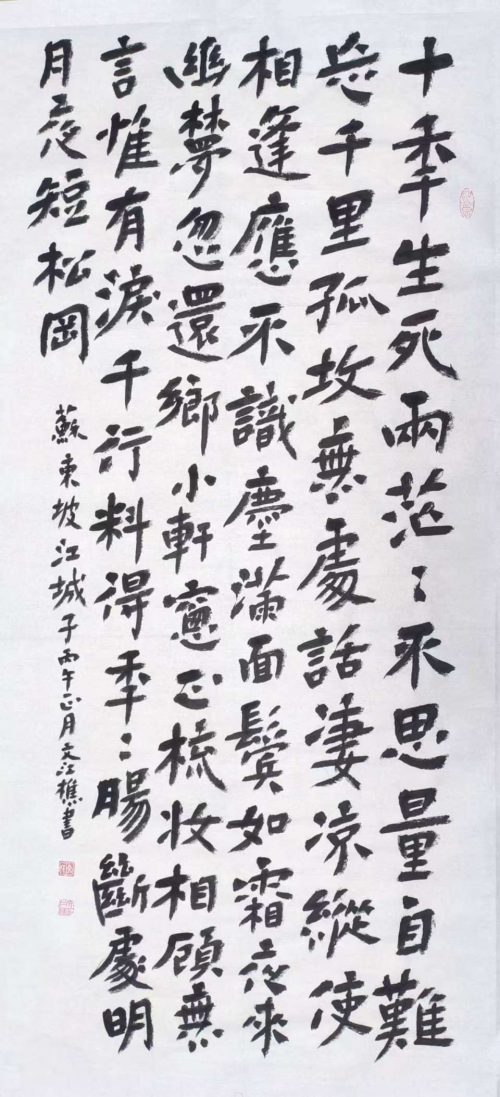 十秊生死兩茫〻不思量自難
忘千里孤坟無處話淒涼縱使
相逢應不識塵滿面鬢如霜夜來
幽夢忽還鄉小軒窻正梳妝相顧無
言惟有淚千行料得秊〻腸斷處明
月夜短松岡
蘇東坡江城子丙午正月文江樵書